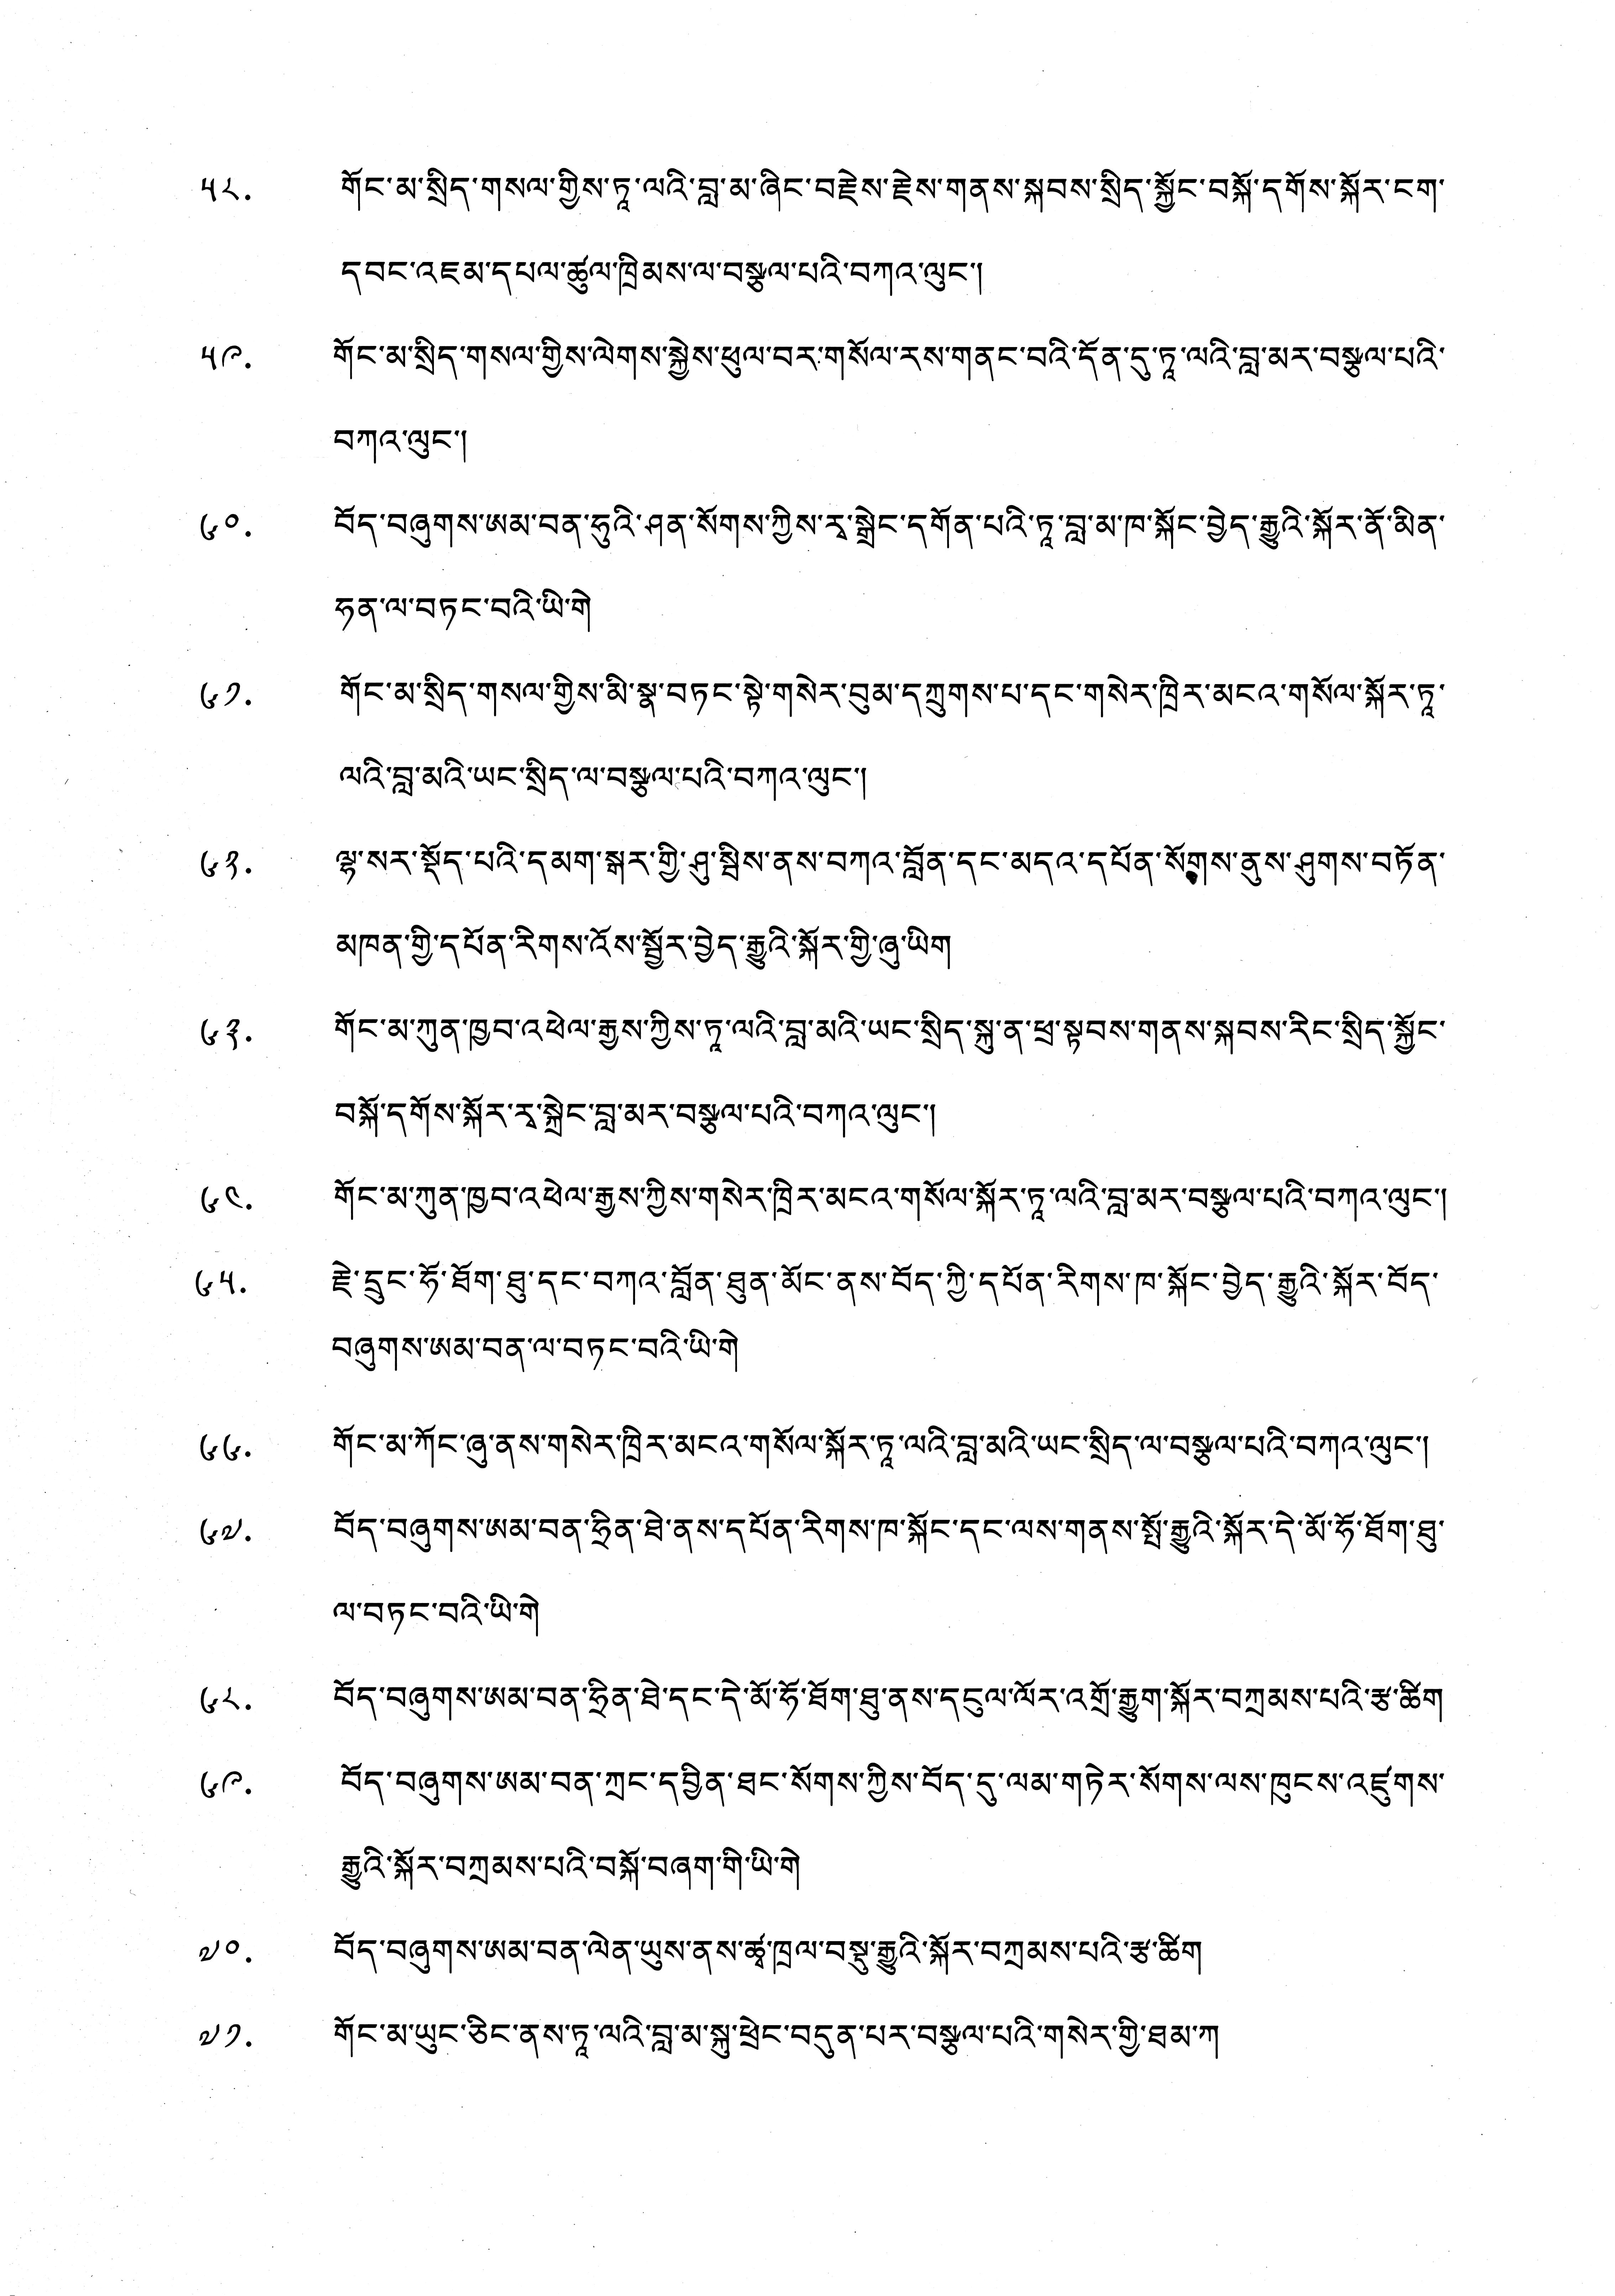 ༥༨. གོང་མ་སྲིད་གསལ་གྱིས་ཏཱ་ལའི་བླ་མ་ཞིང་བརྗེས་རྗེས་གནས་སྐབས་སྲིད་སྐྱོང་བསྐོ་དགོས་སྐོར་ངག་
དབང་འཇམ་དཔལ་ཚུལ་ཁྲིམས་ལ་བསྩལ་པའི་བཀའ་ལུང་།
༥༩. གོང་མ་སྲིད་གསལ་གྱིས་ལེགས་སྐྱེས་ཕུལ་བར་གསོལ་རས་གནང་བའི་དོན་དུ་ཏཱ་ལའི་བླ་མར་བསྩལ་པའི་
བཀའ་ལུང་།
༦༠. བོད་བཞུགས་ཨམ་བན་ཧུའི་ཤན་སོགས་ཀྱིས་རྭ་སྒྲེང་དགོན་པའི་ཏཱ་བླ་མ་ཁ་སྐོང་བྱེད་རྒྱུའི་སྐོར་ནོ་མིན་
ཧན་ལ་བཏང་བའི་ཡི་གེ
༦༡. གོང་མ་སྲིད་གསལ་གྱིས་མི་སྣ་བཏང་སྟེ་གསེར་བུམ་དཀྲུགས་པ་དང་གསེར་ཁྲིར་མངའ་གསོལ་སྐོར་ཏཱ་
ལའི་བླ་མའི་ཡང་སྲིད་ལ་བསྩལ་པའི་བཀའ་ལུང་།
༦༢. ལྷ་སར་སྡོད་པའི་དམག་སྒར་གྱི་ཤུ་སྦིས་ནས་བཀའ་བློན་དང་མདའ་དཔོན་སོགས་ནུས་ཤུགས་བཏོན་
མཁན་གྱི་དཔོན་རིགས་འོས་སྦྱོར་བྱེད་རྒྱུའི་སྐོར་གྱི་ཞུ་ཡིག
༦༣. གོང་མ་ཀུན་ཁྱབ་འཕེལ་རྒྱས་ཀྱིས་ཏཱ་ལའི་བླ་མའི་ཡང་སྲིད་སྐུ་ན་ཕྲ་སྟབས་གནས་སྐབས་རིང་སྲིད་སྐྱོང་
བསྐོ་དགོས་སྐོར་རྭ་སྒྲེང་བླ་མར་བསྩལ་པའི་བཀའ་ལུང་།
༦༤. གོང་མ་ཀུན་ཁྱབ་འཕེལ་རྒྱས་ཀྱིས་གསེར་ཁྲིར་མངའ་གསོལ་སྐོར་ཏཱ་ལའི་བླ་མར་བསྩལ་པའི་བཀའ་ལུང་།
༦༥. རྗེ་དྲུང་ཧོ་ཐོག་ཐུ་དང་བཀའ་བློན་ཐུན་མོང་ནས་བོད་ཀྱི་དཔོན་རིགས་ཁ་སྐོང་བྱེད་རྒྱུའི་སྐོར་བོད་
བཞུགས་ཨམ་བན་ལ་བཏང་བའི་ཡི་གེ
༦༦. གོང་མ་ཀོང་ཞུ་ནས་གསེར་ཁྲིར་མངའ་གསོལ་སྐོར་ཏཱ་ལའི་བླ་མའི་ཡང་སྲིད་ལ་བསྩལ་པའི་བཀའ་ལུང་།
༦༧. བོད་བཞུགས་ཨམ་བན་ཧྲིན་ཐེ་ནས་དཔོན་རིགས་ཁ་སྐོང་དང་ལས་གནས་སྤོ་རྒྱུའི་སྐོར་དེ་མོ་ཧོ་ཐོག་ཐུ་
ལ་བཏང་བའི་ཡི་གེ
༦༨. བོད་བཞུགས་ཨམ་བན་ཧྲིན་ཐེ་དང་དེ་མོ་ཧོ་ཐོག་ཐུ་ནས་དངུལ་ལོར་འགྲོ་རྒྱུག་སྐོར་བཀྲམས་པའི་རྩ་ཚིག
༦༩. བོད་བཞུགས་ཨམ་བན་ཀྲང་དབྱིན་ཐང་སོགས་ཀྱིས་བོད་དུ་ལམ་གཏེར་སོགས་ལས་ཁུངས་འཛུགས་
རྒྱུའི་སྐོར་བཀྲམས་པའི་བསྐོ་བཞག་གི་ཡི་གེ
༧༠. བོད་བཞུགས་ཨམ་བན་ལེན་ཡུས་ནས་ཚྭ་ཁྲལ་བསྡུ་རྒྱུའི་སྐོར་བཀྲམས་པའི་རྩ་ཚིག
༧༡. གོང་མ་ཡུང་ཅིང་ནས་ཏཱ་ལའི་བླ་མ་སྐུ་ཕྲེང་བདུན་པར་བསྩལ་པའི་གསེར་གྱི་ཐམ་ཀ